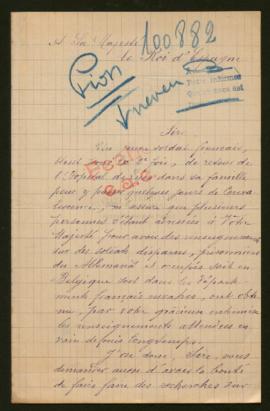 A Sa Majesté
100882
le Roi d'Espagne
Pion
Sire,
soldat français,
de retour de
l'hopital dans sa famille
pour y passer quelques jours de conva
lescence, m'assure que plusieurs
personnes s'étant adressées à Votre
Majesté pour avoir des renseignements
sur des soldats disparus, prisonniers
en Allemagne et soit en
Belgique soit dans les départe
ments français envahis, ont obte
nu, par votre gracieux
les renseignements attendus en
vain depuis longtemps.
J'ose donc, Sire, vous
demander aussi d'avoir la bonté
de faire faire des recherches sur